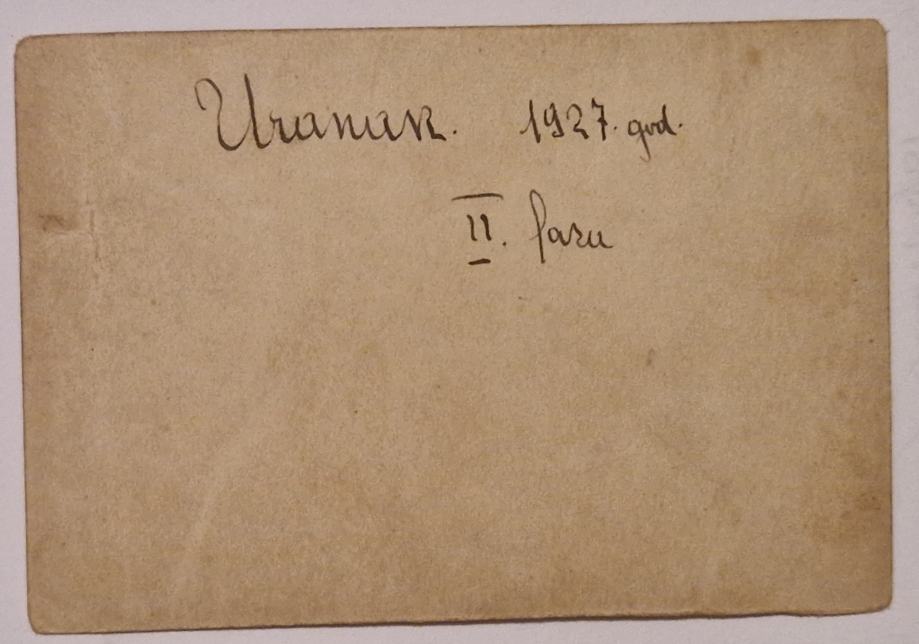 Uranak. 1927. god.
II. faza